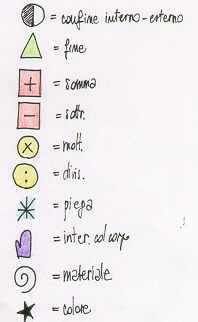 = confine interno-esterno
= fine
+ = somma
- = sottr.
x = molt.
: = divis.
= piega
= inter. col corpo
= materiale
= colore